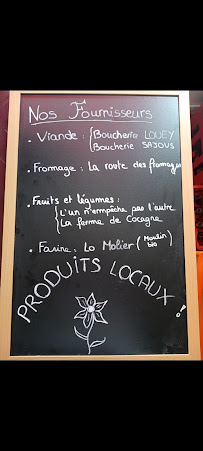 Nos Fournisseurs
• Viande : { Boucherie LOUEY
Boucherie SAJOUS
• Fromage : La route des fromages
• Fruits et légumes :
{ L'un n'empêche pas l'autre
La ferme de Cocagne
• Farine : Lo Molier (Moulin bio)
PRODUITS LOCAUX !